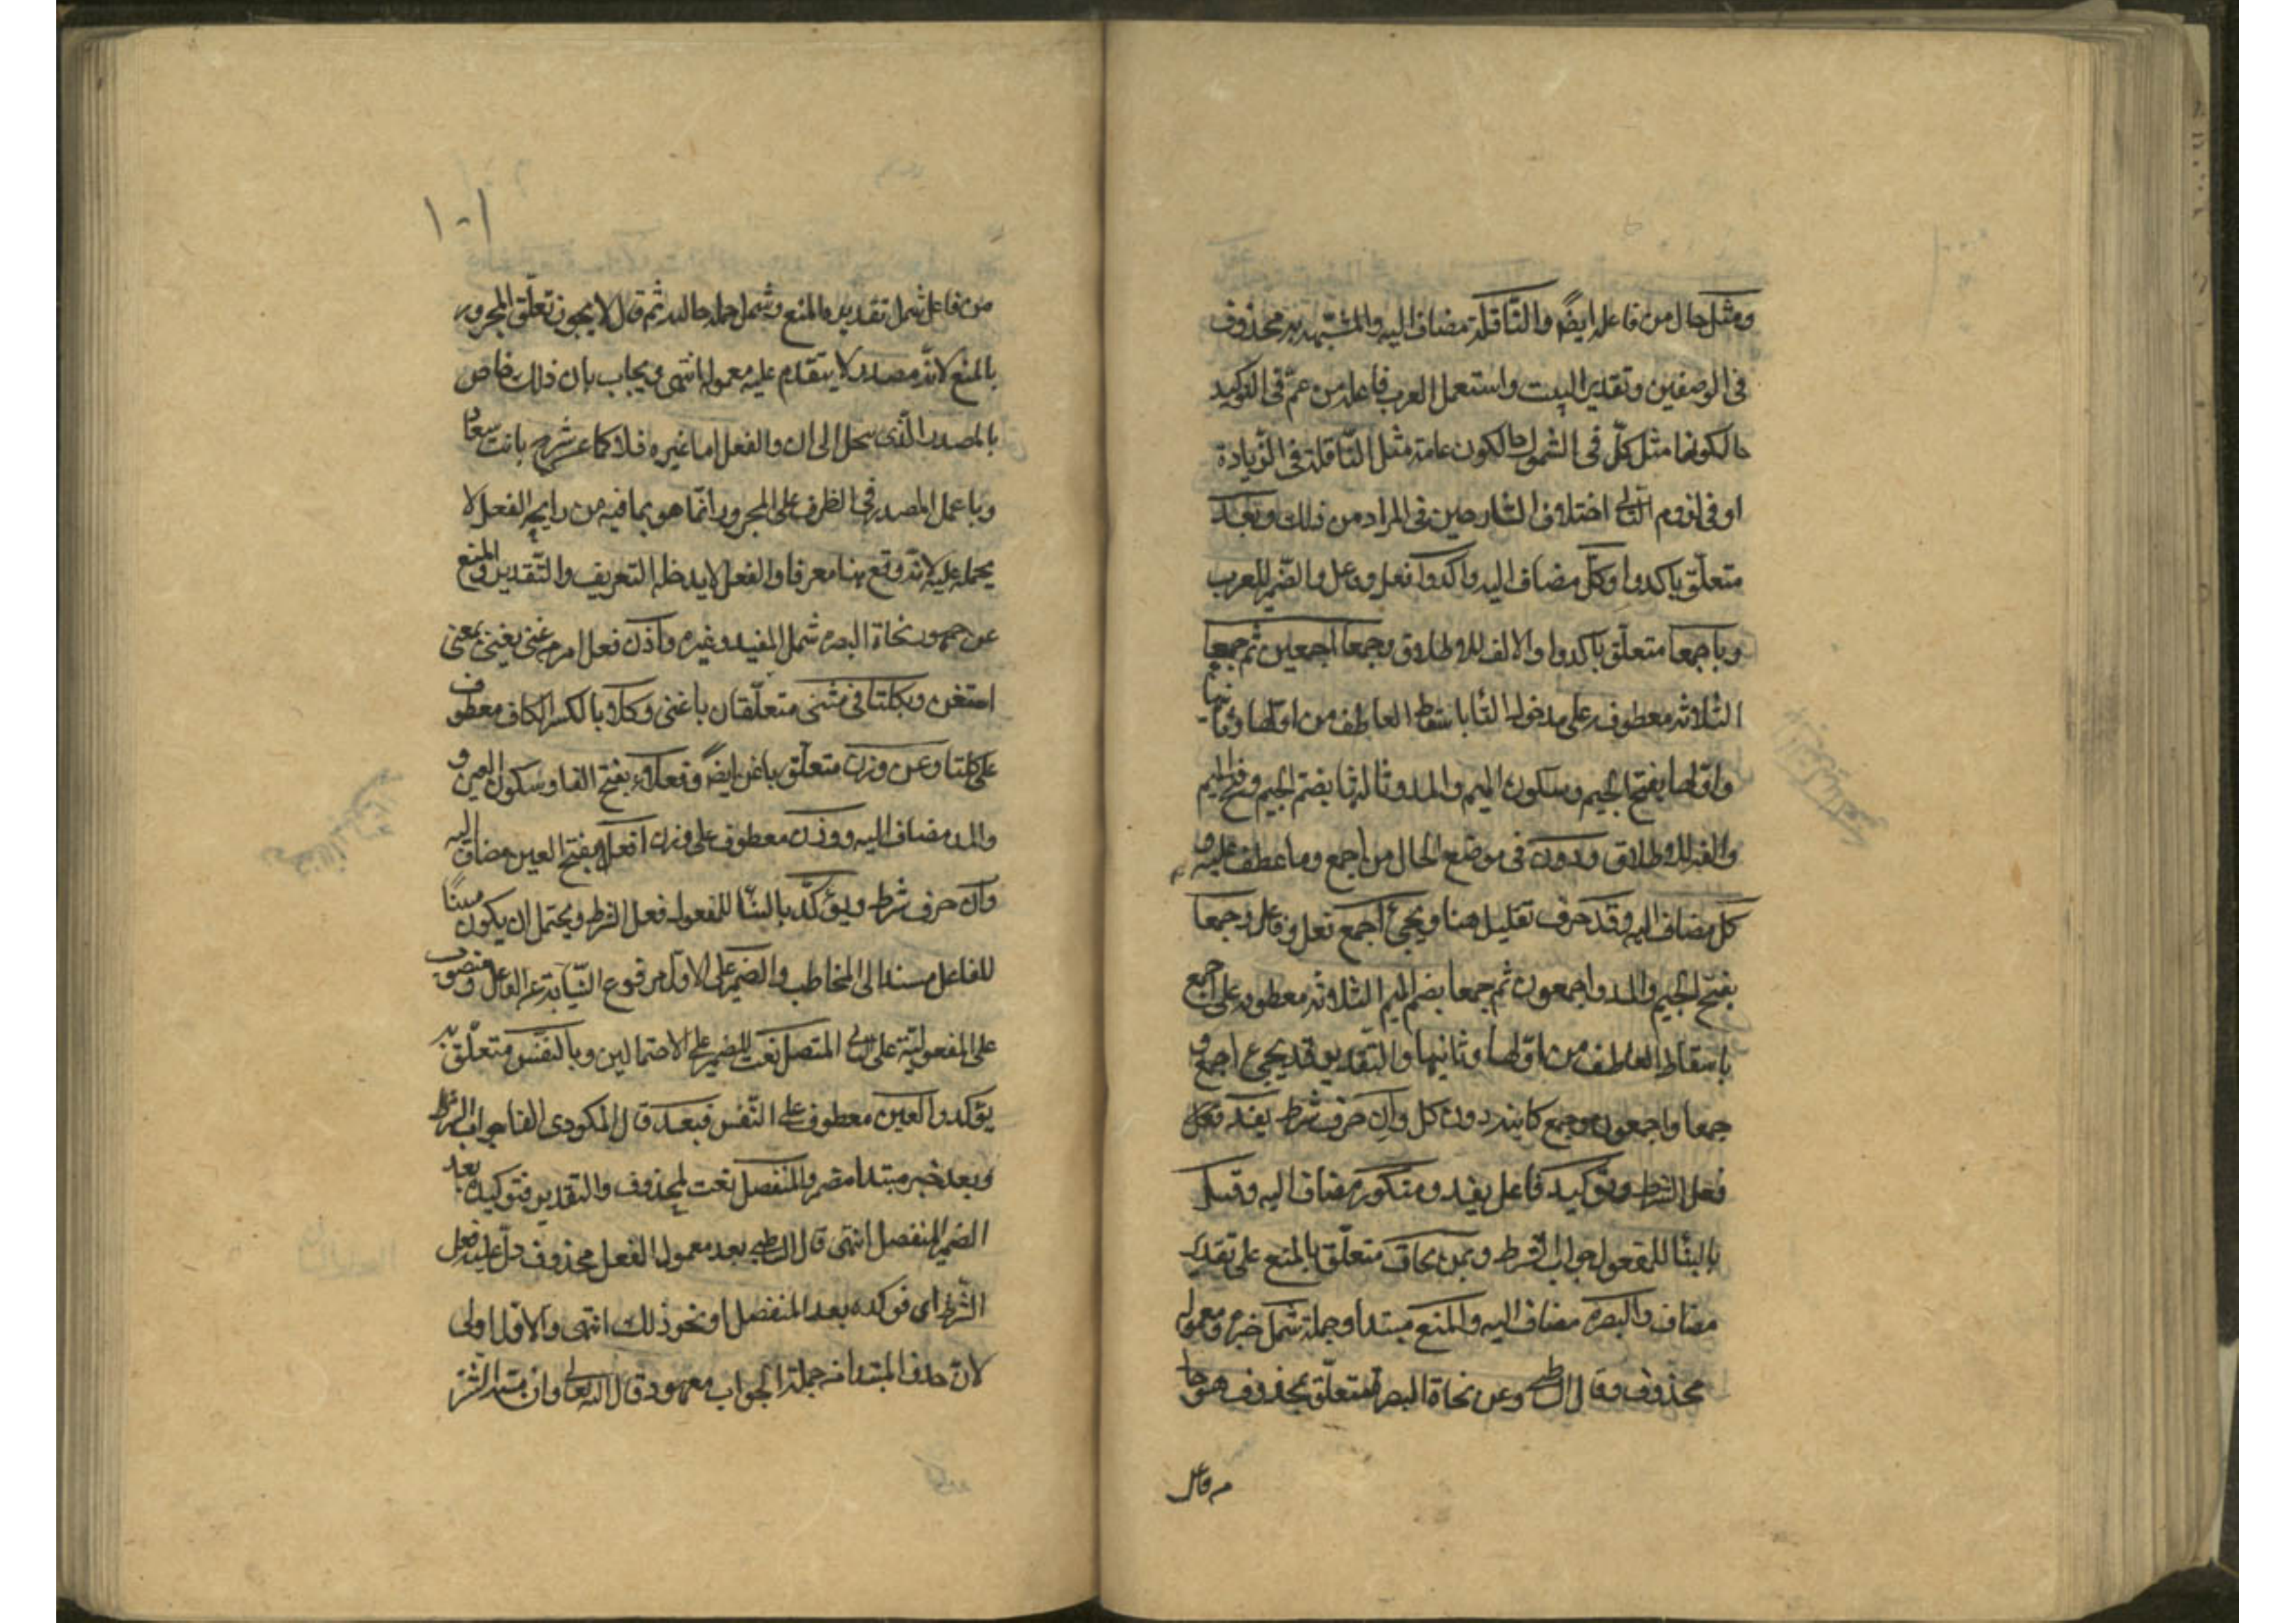 ومثل حال من فاعله ايضا والناقلة مضاف اليه والمشبه به محذوف
فى الوصفين وتقدير البيت واستعمل العرب فاعله من عمّ فى التوكيد
حالكونها مثل كلّ فى الشمول حالكون عامة مثل النّاقلة فى الزّيادة
او فى لزوم التا اختلاف الشارحين فى المراد من ذلك وبعد
متعلّق باكدوا وكلّ مضاف اليه واكدوا فعل وفاعل والضّمير للعرب
وباجمعا متعلّق باكدوا والالف للاطلاق وجمعا اجمعين ثم جمعا
الثلاثه معطوفه على مدخول البا باسقاط العاطف من اولها وثانيها
واولها بفتح الجيم وسكون الميم والمد وثالثها بضمّ الجيم وفتح الميم
والفه للاطلاق ودون فى موضع الحال من اجمع وما عطف عليه و
كل مضاف اليه وقد حرف تقليل هنا ويجئ اجمع فعل وفاعل وجمعا
بفتح الجيم والمد واجمعون ثم جمعا بضم الجيم الثلاثه معطوفه على اجمع
باسقاط العاطف من اولها وثانيها والتقدير قد يجئ اجمع و
جمعا واجمعون وجمع كاينه دون كل وان حرف شرط يفد فعل
فعل الشرط وتوكيد فاعل يفد ومنكور مضاف اليه وقبل
بالبنّا للمفعول جواب الشرط وعن نحاة متعلّق بالمنع على تقدير
مضاف والبصره مضاف اليه والمنع مبتدا وجملة شمل خبره ومعموله
محذوف وقال الشاطبى وعن نحاة البصرة متعلّق بمحذوف هو حا
من فاعل
١٠١
من فاعل شمل تقديره والمنع وشمل جملة حاليه ثم قال لا يجوز تعلّق المجرور
بالمنع لانّه مصدر لا يتقدم عليه معموله انتهى ويجاب بان ذلك خاص
بالمصدر الّذى ينحل الى ان والفعل اما غيره فلا كما فى شرح بانت سعاد
وبا عمل المصدر فى الظرف على المجرور انّما هو بما فيه من رايحه الفعل لا
بحمله عليه لانّه وقع هنا معرفا والفعل لا يدخله التعريف والتّقدير والمنع
عن جمهور نحاة البصره شمل المفيد وغيره واغن فعل امر من غنى يغنى بمعنى
استغن وبكلتا فى مثنى متعلّقان باغنى وكلا بالكسر الكاف معطوف
على كلتا وعن وزن متعلّق باغن ايضا وفعلاء بفتح الفا وسكون العين و
والمد مضاف اليه ووزن معطوف على وزن افعل بفتح العين مضاف اليه
وان حرف شرط ويؤكّد بالبنّا للمفعول فعل الشرط ويحتمل ان يكون مبنيّا
للفاعل مسندا الى المخاطب والضمير على الاول مرفوع النّيابة عن الفاعل ومنصوب
على المفعوليّة على الثانى المتصل نعت للضمير على الاحتمالين وبالنّفس متعلّق به
يؤكد والعين معطوف على النّفس فبعد قال المكودى الفا جواب الشرط
وبعد خبر مبتدا مضمر والمنفصل نعت لمحذوف والتقدير فتوكيده بعد
الضمير المنفصل انتهى قال الشاطبى بعد معمول الفعل محذوف دلّ عليه فعل
الشّرط اى فوكده بعد المنفصل او نحو ذلك انتهى والاوّل اولى
لانّ حذف المبتدا من جملة الجواب معهود قال الله تعالى وان مسّه الشّرّ